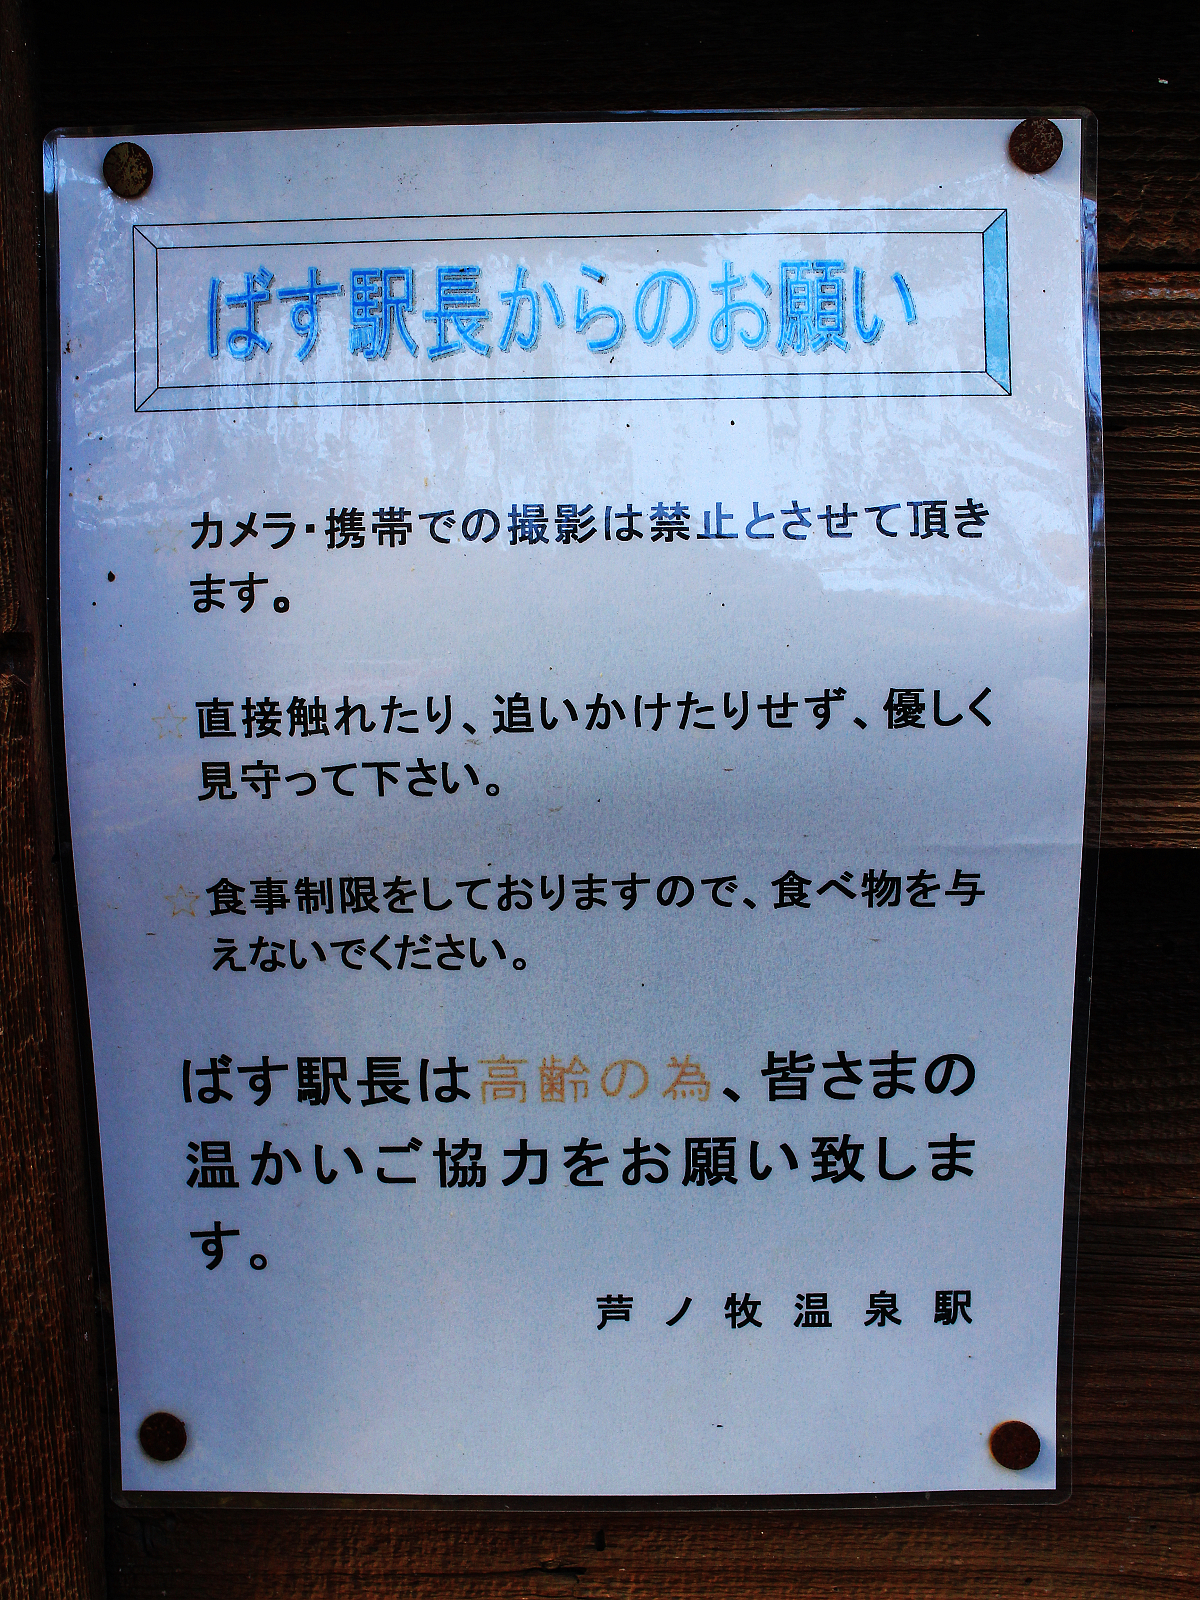 ばす駅長からのお願い
カメラ・携帯での撮影は禁止とさせて頂き
ます。
☆直接触れたり、追いかけたりせず、優しく
見守って下さい。
☆食事制限をしておりますので、食べ物を与
えないでください。
ばす駅長は高齢の為、皆さまの
温かいご協力をお願い致しま
す。
芦ノ牧温泉駅